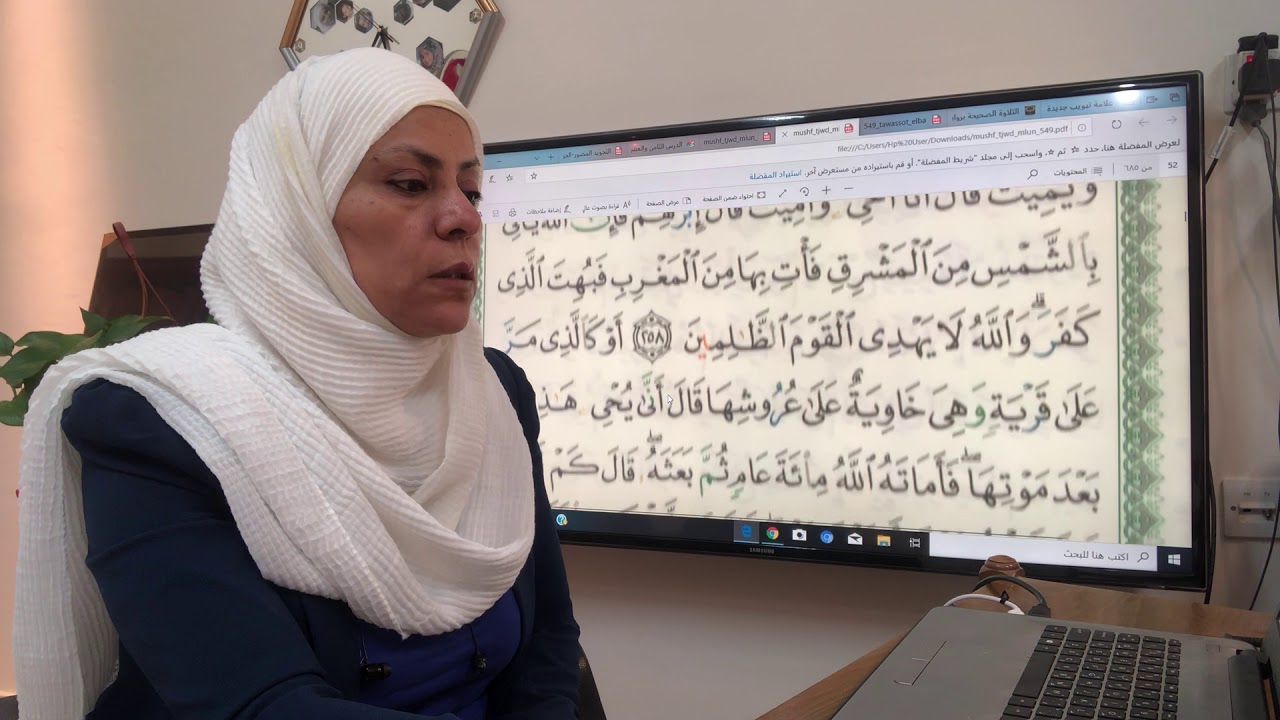 علامة تبويب جديدة
التلاوة الصحيحة برواي
549_tawassot_elba
mushf_tjwd_ml
mushf_tjwd_mlun_
الدرس الثامن والعشر
التجويد المصور-الجز
file:///C:/Users/Hp%20User/Downloads/mushf_tjwd_mlun_549.pdf
لعرض المفضلة هنا، حدد ☆ ثم ☆، واسحب إلى مجلد "شريط المفضلة". أو قم باستيراده من مستعرض آخر. استيراد المفضلة
52 من ٦٨٥ المحتويات
احتواء ضمن الصفحة عرض الصفحة قراءة بصوت عالٍ إضافة ملاحظات
وَيُمِيتُ قَالَ أَنَا۠ أُحْيِ وَأُمِيتُ قَالَ إِبْرَٰهِـۧمُ فَإِنَّ ٱللَّهَ يَأْتِى
بِٱلشَّمْسِ مِنَ ٱلْمَشْرِقِ فَأْتِ بِهَا مِنَ ٱلْمَغْرِبِ فَبُهِتَ ٱلَّذِى
كَفَرَ ۗ وَٱللَّهُ لَا يَهْدِى ٱلْقَوْمَ ٱلظَّـٰلِمِينَ ٢٥٨ أَوْ كَٱلَّذِى مَرَّ
عَلَىٰ قَرْيَةٍ وَهِىَ خَاوِيَةٌ عَلَىٰ عُرُوشِهَا قَالَ أَنَّىٰ يُحْىِۦ هَـٰذِ
بَعْدَ مَوْتِهَا ۖ فَأَمَاتَهُ ٱللَّهُ مِا۟ئَةَ عَامٍ ثُمَّ بَعَثَهُۥ ۖ قَالَ كَمْ
اكتب هنا للبحث
SAMSUNG